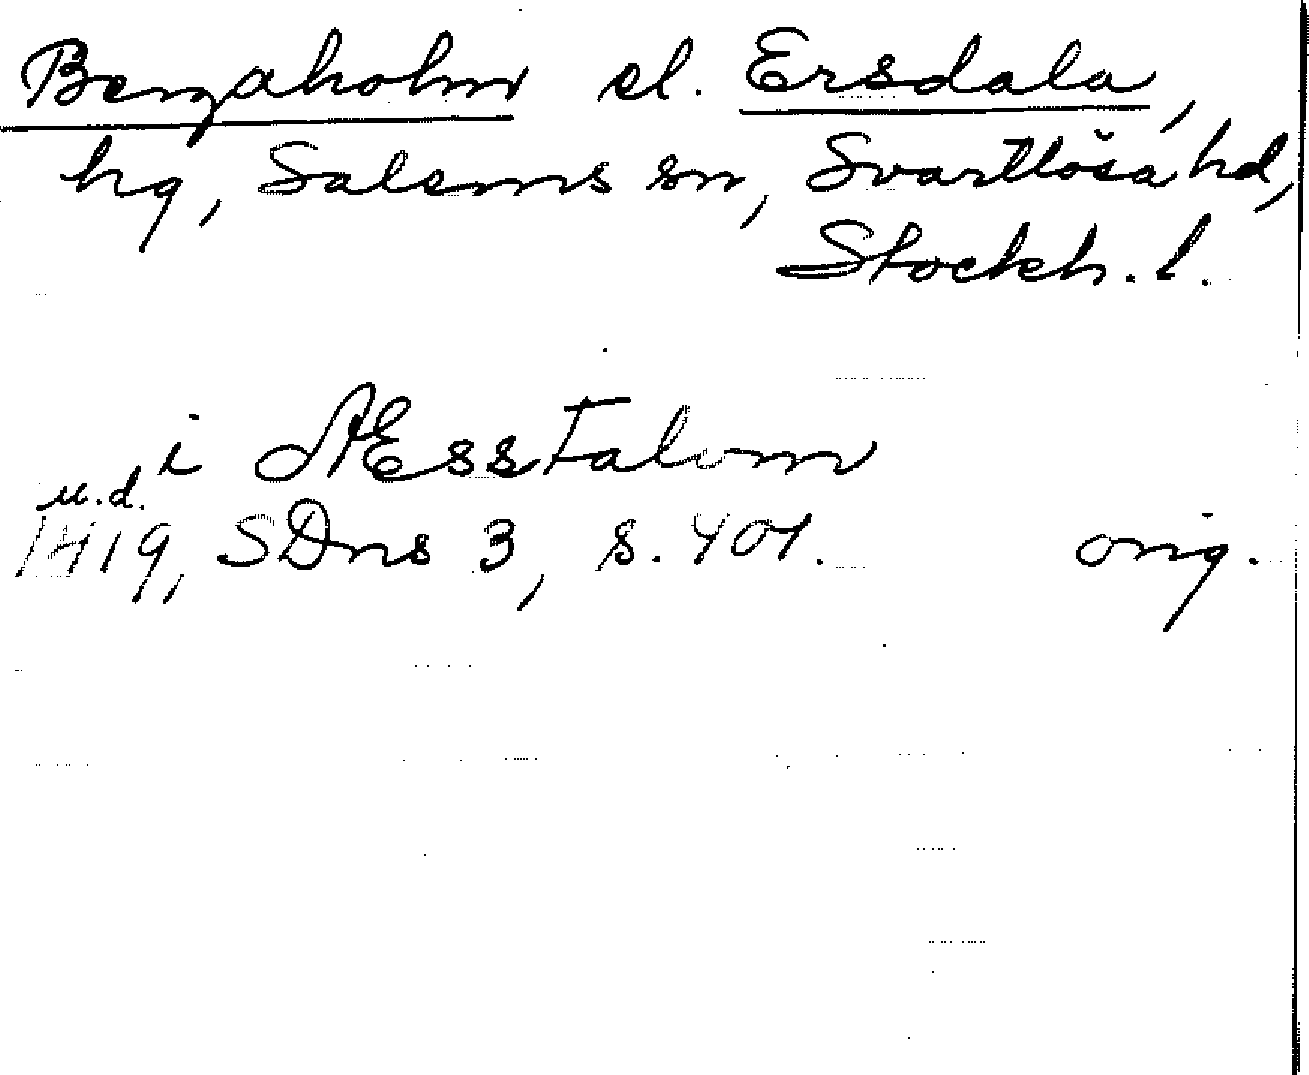 Bergaholm el. Ersdala,
hg, Salems sn, Svartlösa hd,
Stockh. l.
i Æsstalom
u.d.
1419, SDns 3, s. 401. orig.